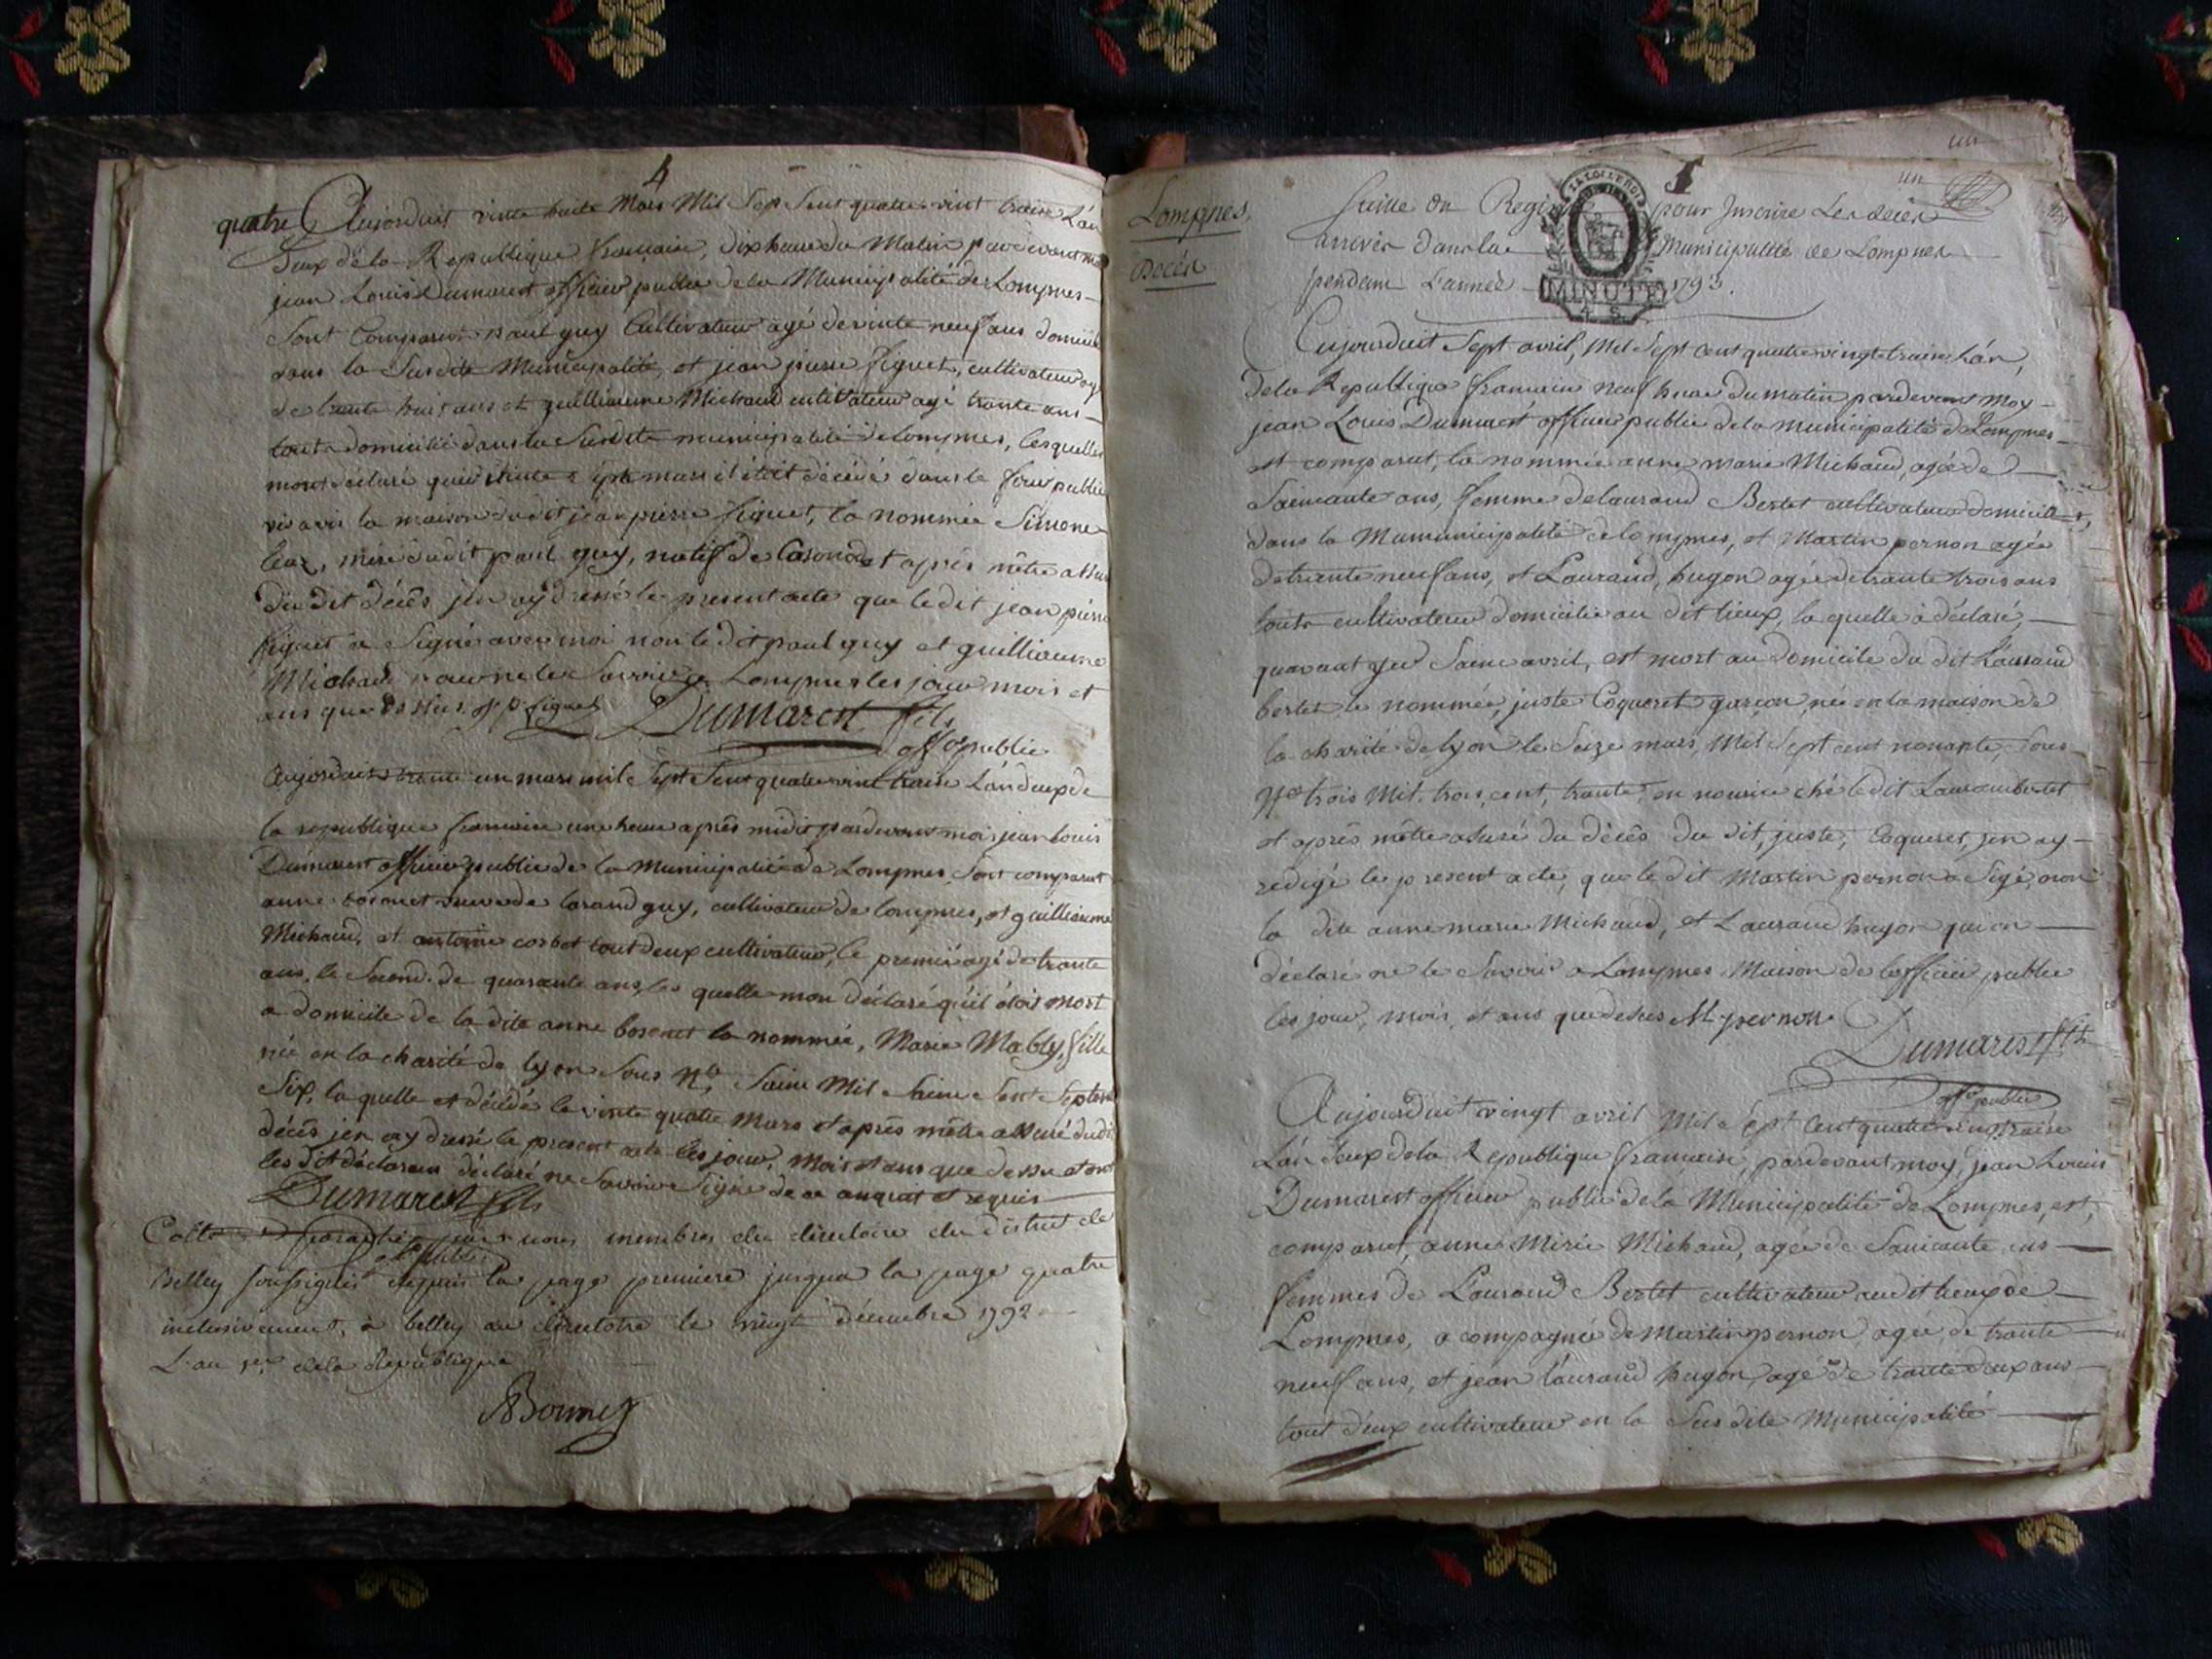 4
quatre Aujorduit vinte huite Mars Mil Sep Sent quatre vint traise L'án
Deux dela Republique francaise, dix heure du Matin pardevant moi
jean Louis Dumarest officier public dela Municipalité de Lompnes
Sont Comparus paul guy Cultivateur agé de vinte neuf ans domicilié
dans la Susdite Municipalité, et jean pierre figuet, cultivateur agé
de trante huit ans et guilliaume Michaud cultivateur agé trante ans
tout domicilié dans la Susdite municipalité de lompnes, lesquelles
mont declaré que vinte sept mars il étoit décédé dans le four public
vis avis la maison du dit jean pierre figuet, la nommée Simone
mère dudit paul guy, natif de et après mêtre assuré
du dit décès jen ay dressé le present acte que le dit jean pierre
figuet a Signé avec moi non le dit paul guy et guilliaume
Michaud pour ne le Savoir a Lompnes les jour mois et
ans que dessus. J p figuet Dumarest fils
off.er public
Aujorduit trante un mars mil Sept Sent quatre vint traise L'án deux de
la republique francaise une heure après midit pardevant moi jean Louis
Dumarest officier public de la Municipalité de Lompnes, Sont comparut
anne bosonet veuve de lorand guy, cultivateur de lompnes, et guilliaume
Michaud, et antoine corbet tout deux cultivateur, le premier agé de trante
ans, le Second de quarante ans, les quelle mon déclaré qu'il étoit mort
a domicile de la dite anne bosonet la nommée, Marie Mably, fille
née en la charité de lyon Sous N.o Sainc Mil Sainc Sent Septante
Six, la quelle et décédé le vinte quatre Mars et après mêtre assuré dudit
décès jen ay dressé le present acte les jour, Mois et ans que dessu et ont
les dit déclarans déclaré ne Savoir Signé de ce enquit et requis
Dumarest fils
off.er public
Cotté et paraphé par nous membres du directoire du district de
Belley soussignés depuis la page premiere jusqua la page quatre
inclusivement, à belley au directoire le vingt décembre 1792
L'an 1er dela Republique
Lompnes.
Décès
un
1
un
Suitte du Regi pour Inscrire Les décès
arrivés dans la Municipalité de Lompnes
pendant L'année 1793.
LA LOI LE ROI
MINUTE
4 S.
Aujourduit Sept avril, Mil Sept Cent quatre vingt traise L'án,
dela Republique francaise neuf heure du matin pardevant moy
jean Louis Dumarest officier public dela municipalité de Lompnes
est comparut, la nommée anne marie Michaud, agée de
Saincante ans, femme de Lauraud Bertet cultivateur domicilié
dans la Mumunicipalité de lompnes, et Martin pernon agée
de trante neuf ans, et Lauraud, hugon agée de trante trois ans
touts cultivateur domicilié au dit lieux, la quelle à déclaré,
quavant yer Sainc avril, est mort au domicile du dit Lauraud
bertet le nommée, juste Coqueret garçon, née en la maison de
la charité de lyon le Seize mars, Mil Sept cent nonante, Sous
N.o trois Mil, trois, cent, trante, en nourice ché le dit Lauraud bertet
et après mêttre assuré du décès du dit, juste, Coqueret, jen ay
redigé le present acte, que le dit Martin pernon a Sigé, non
la dite anne marie Michaud, et Lauraud hugon qui on
déclaré ne le Savoir a Lompnes Maison de lofficier public
les jour, mois, et ans que dessus M pernon
Dumarest fils
off.er public
Aujourduit vingt avril Mil Sept Cent quatre vingt traise
L'án Deux dela Republique francaise, pardevant moy, jean Louis
Dumarest officier public dela Municipalité de Lompnes, est,
comparut, anne Mirie Michaud, agée de Saincante ans
femmes de Lauraud Bertet cultivateur audit lieux de
Lompnes, acompagnée de Martin pernon, agée, de trante
neuf ans, et jean lauraud hugon, agé de trante deux ans
tout deux cultivateur en la Sus dite Municipalité